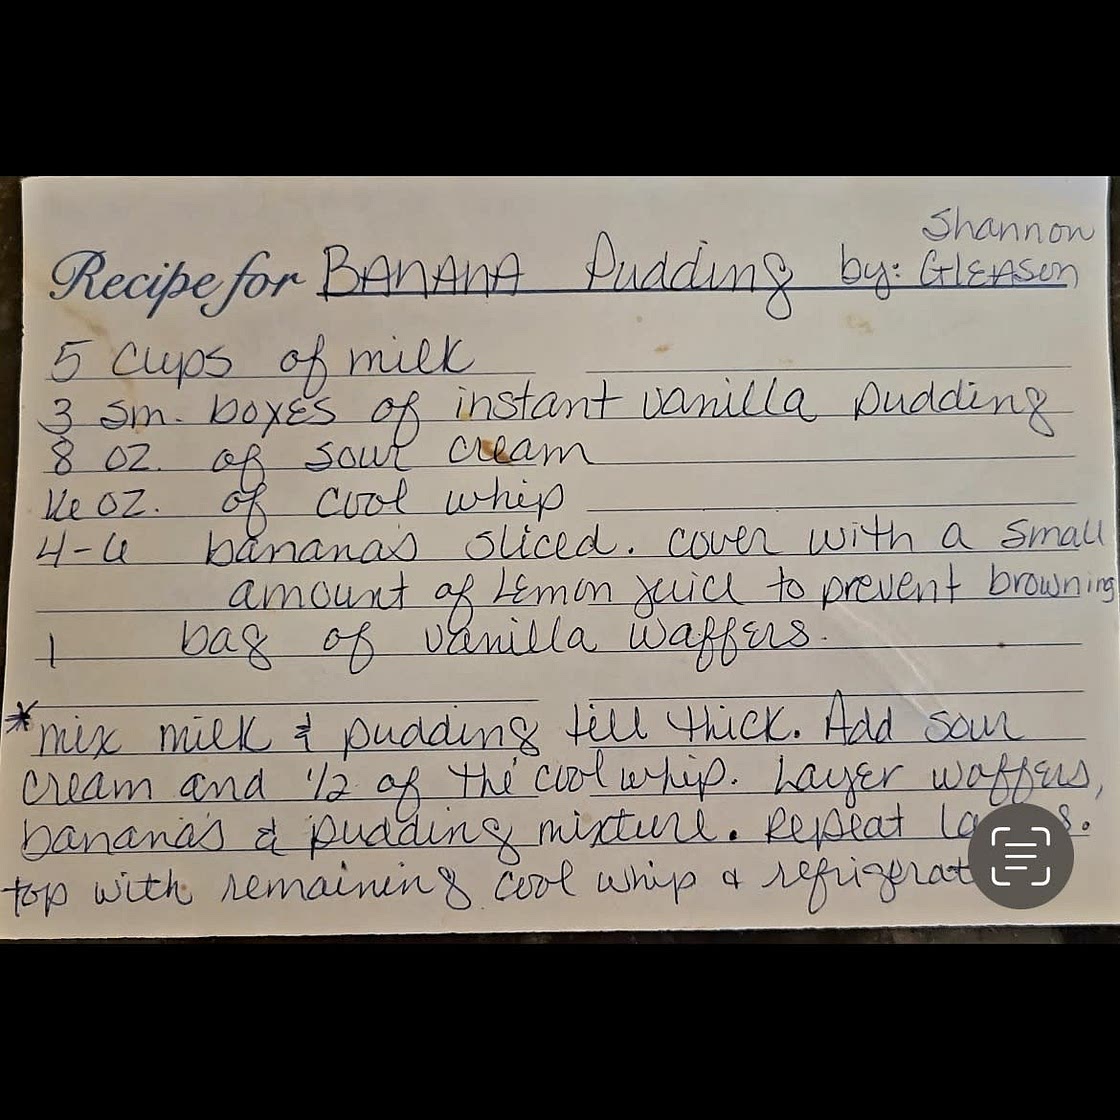 Shannon
Recipe for BANANA Pudding by: GLEASON
5 cups of milk
3 sm. boxes of instant vanilla pudding
8 oz. of sour cream
16 oz. of cool whip
4-6 bananas sliced. cover with a small
amount of Lemon juice to prevent browning
1 bag of vanilla waffers.
*mix milk & pudding till thick. Add sour
cream and 1/2 of the cool whip. Layer waffers,
banana's & pudding mixture. Repeat
top with remaining cool whip &